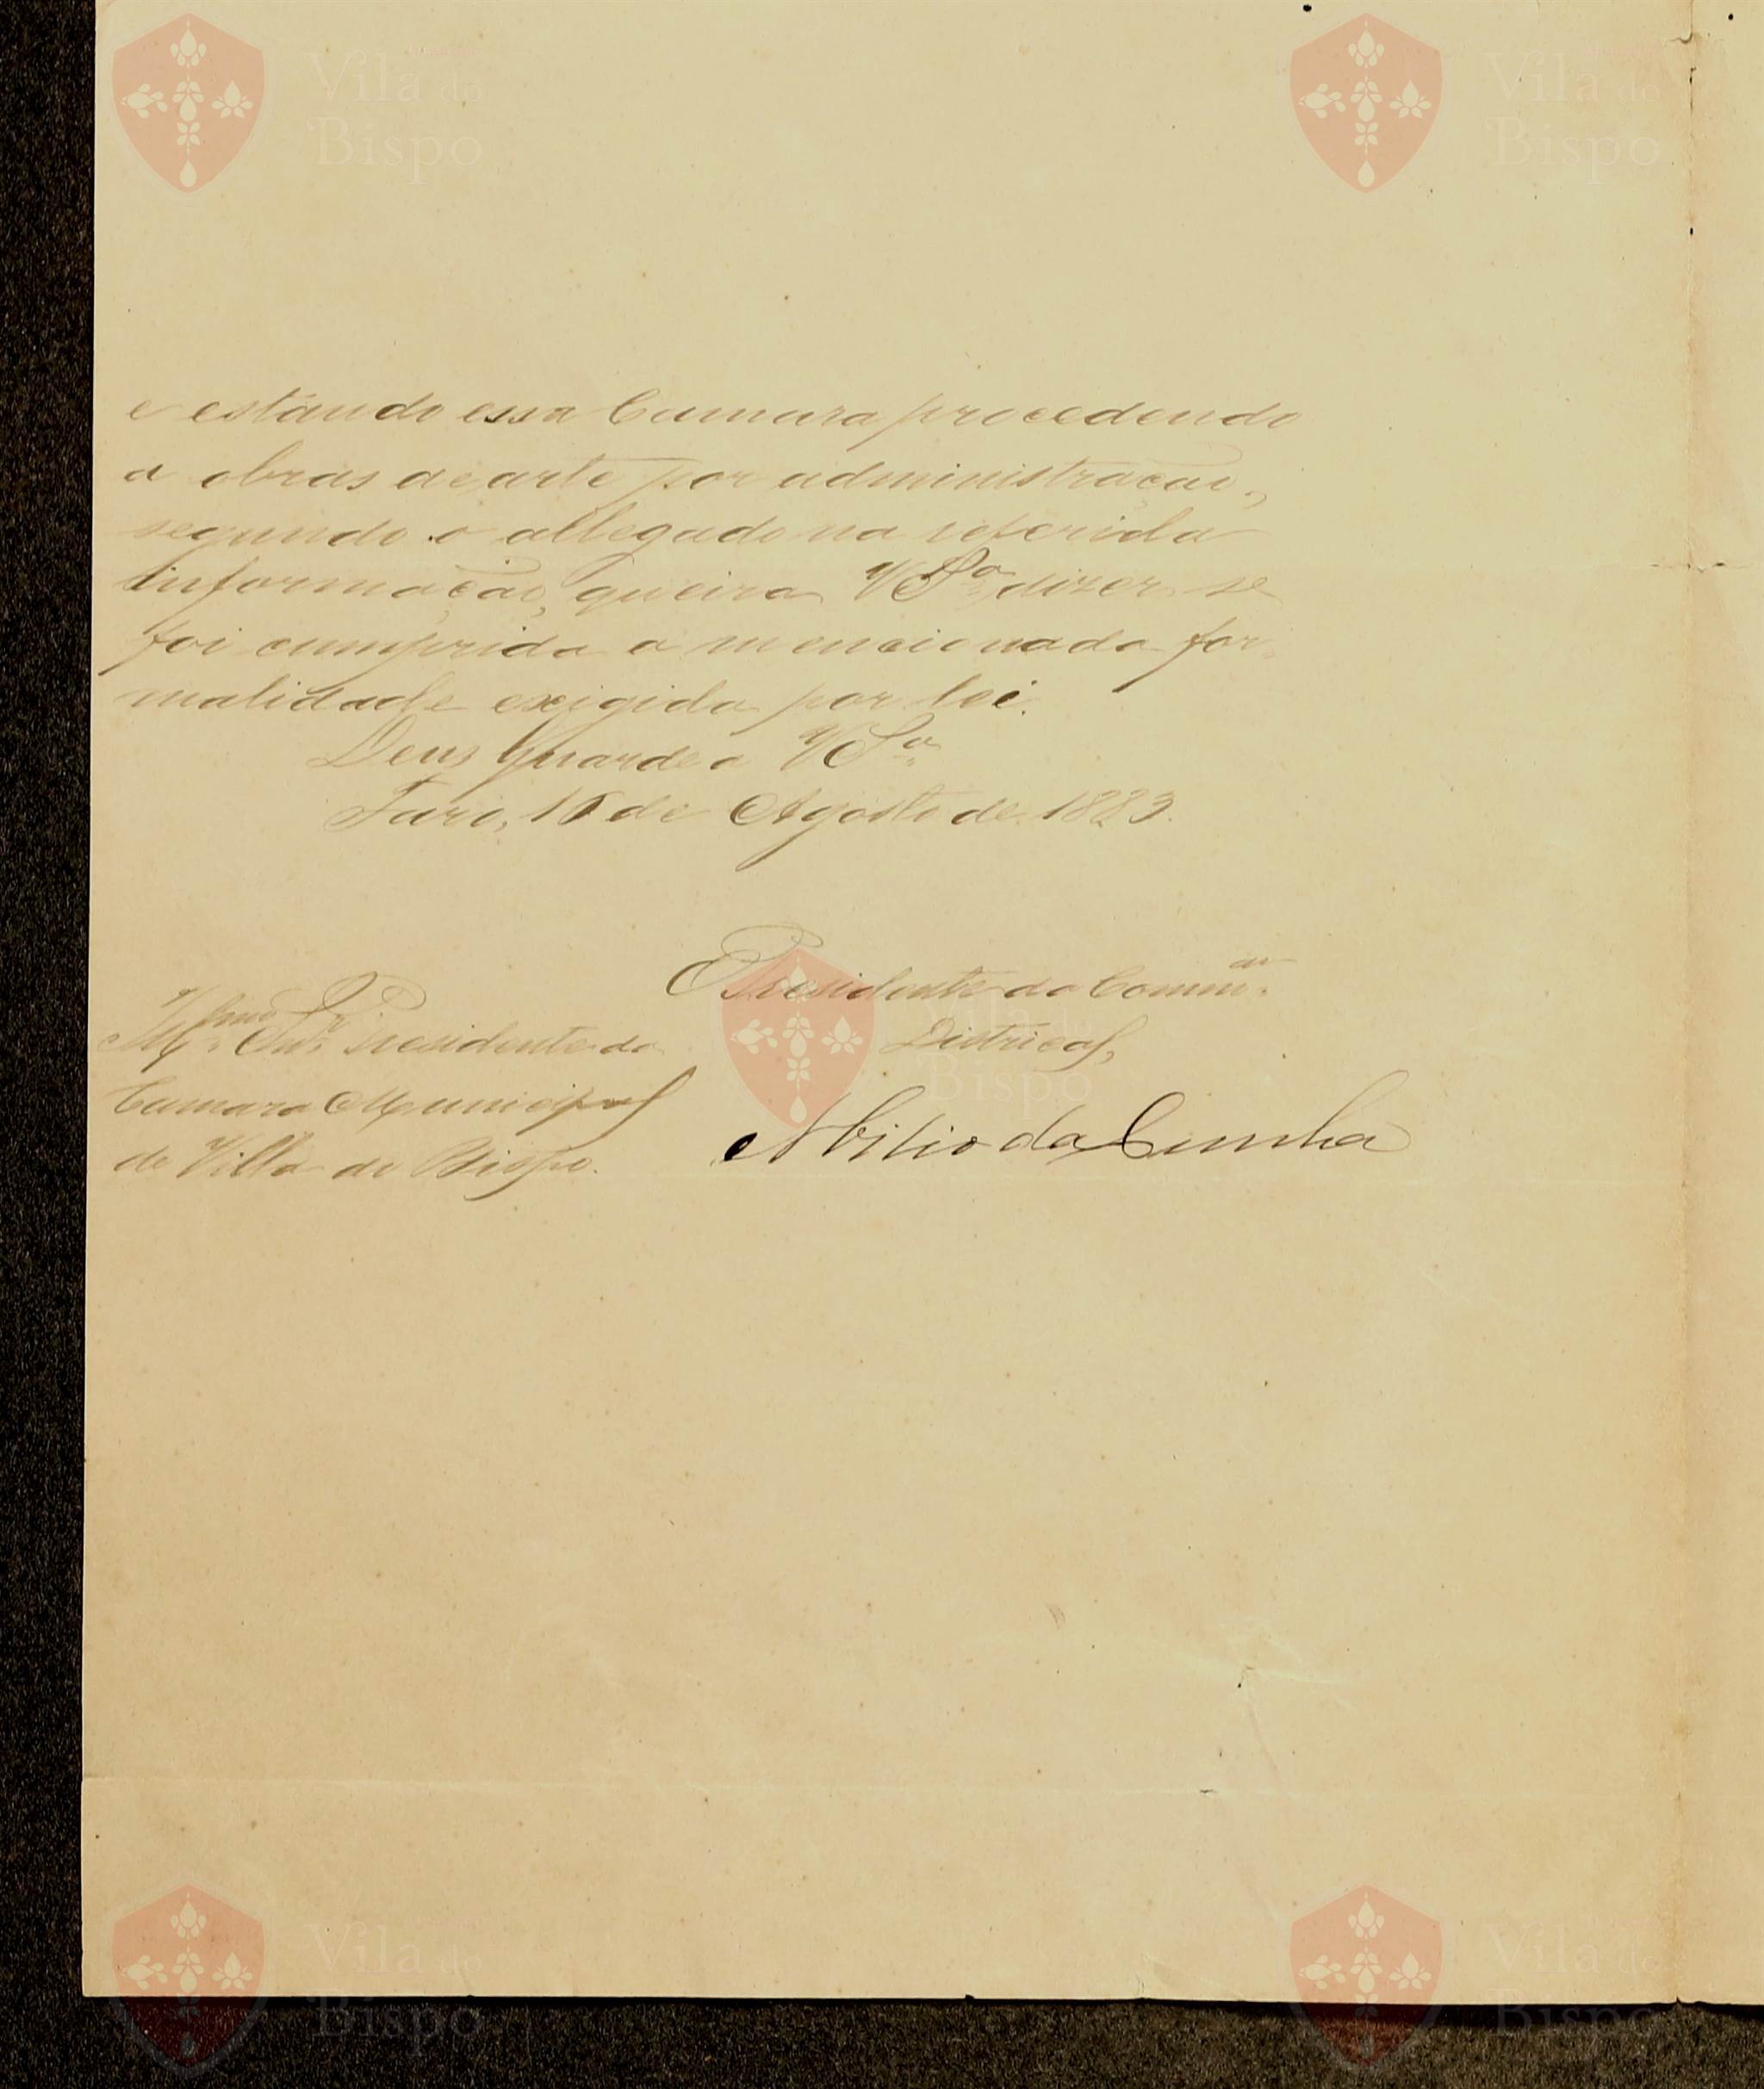 e estando essa Camara procedendo
a obras de arte por administração,
segundo o allegado na referida
informação, queira V. S.ª dizer se
foi cumprida a mencionada for-
malidade exigida por lei.
Deus Guarde a V. S.ª
Faro, 16 de Agosto de 1883.
Presidente da Comm.ão
Districtal,
Ill.mo Snr. Presidente da
Camara Municipal
de Villa do Bispo.
Abilio da Cunha
Vila do
Bispo
Vila do
Bispo
Vila do
Bispo
Vila do
Bispo
Vila do
Bispo